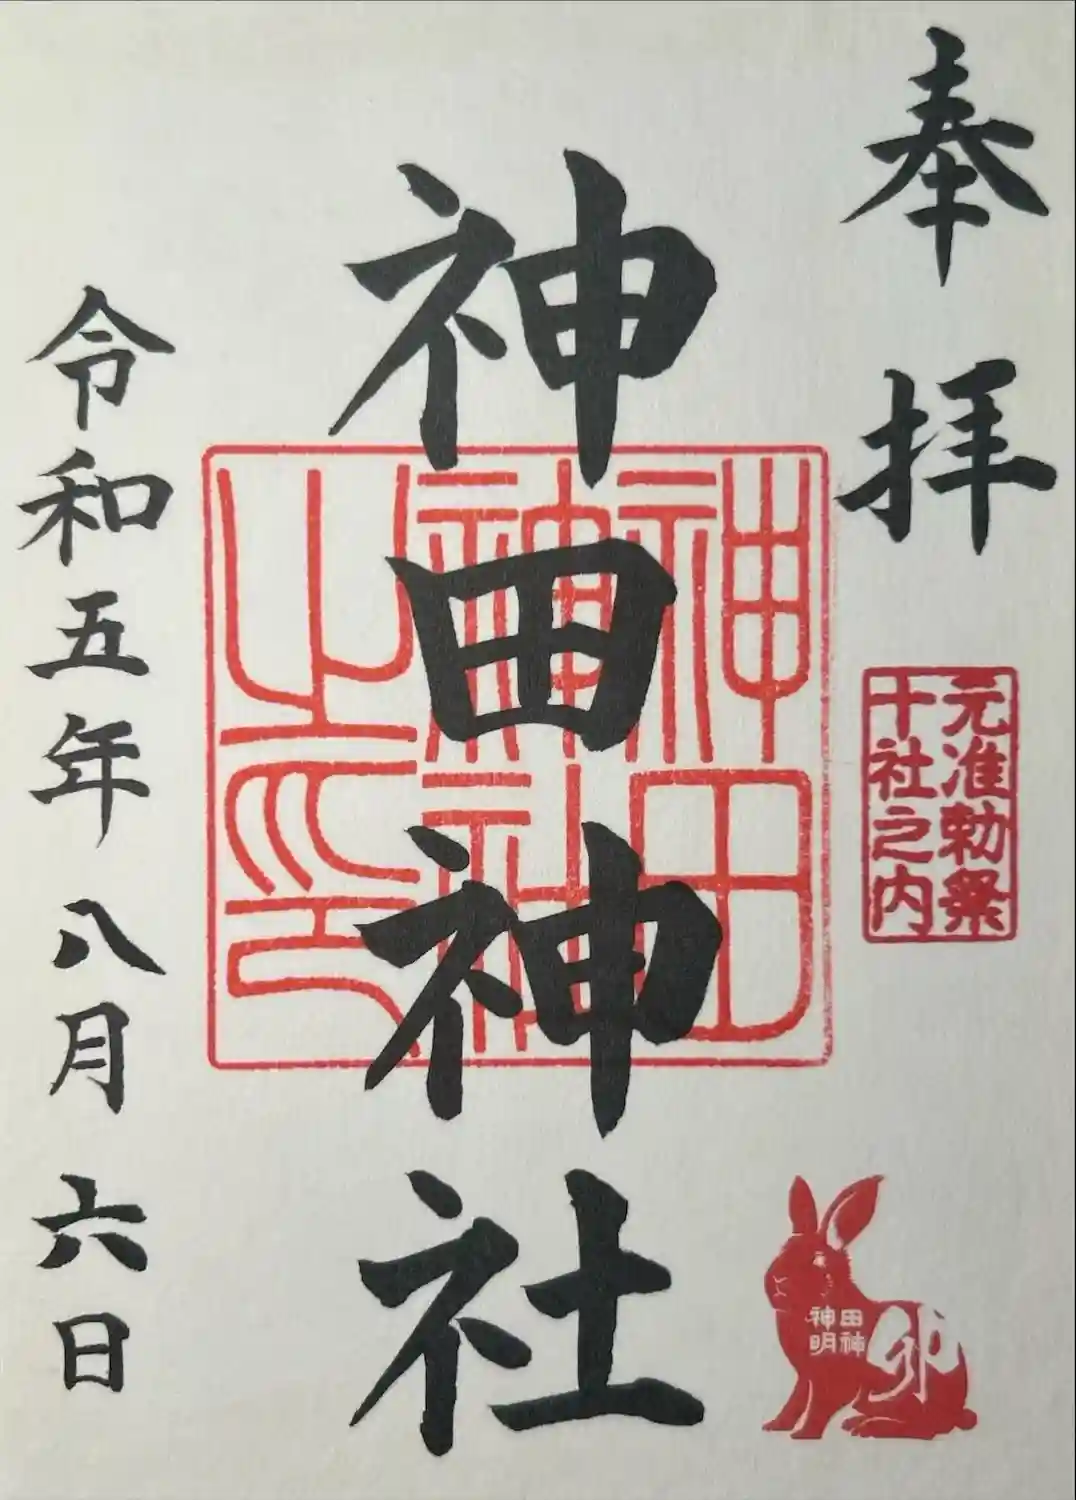 奉拝
元准勅祭
十社之内
神田神社
神田
神社
之印
令和五年八月六日
神田
神明
卯